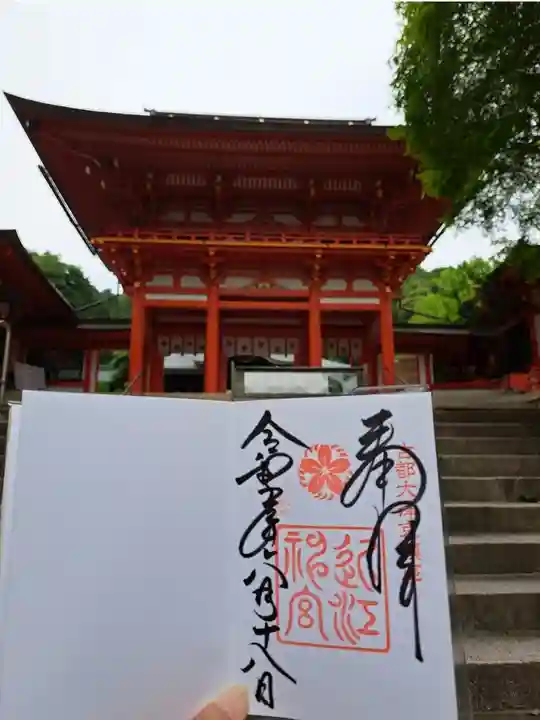 奉拝
古都大津京鎮座
近江
神宮
令和 年八月十八日